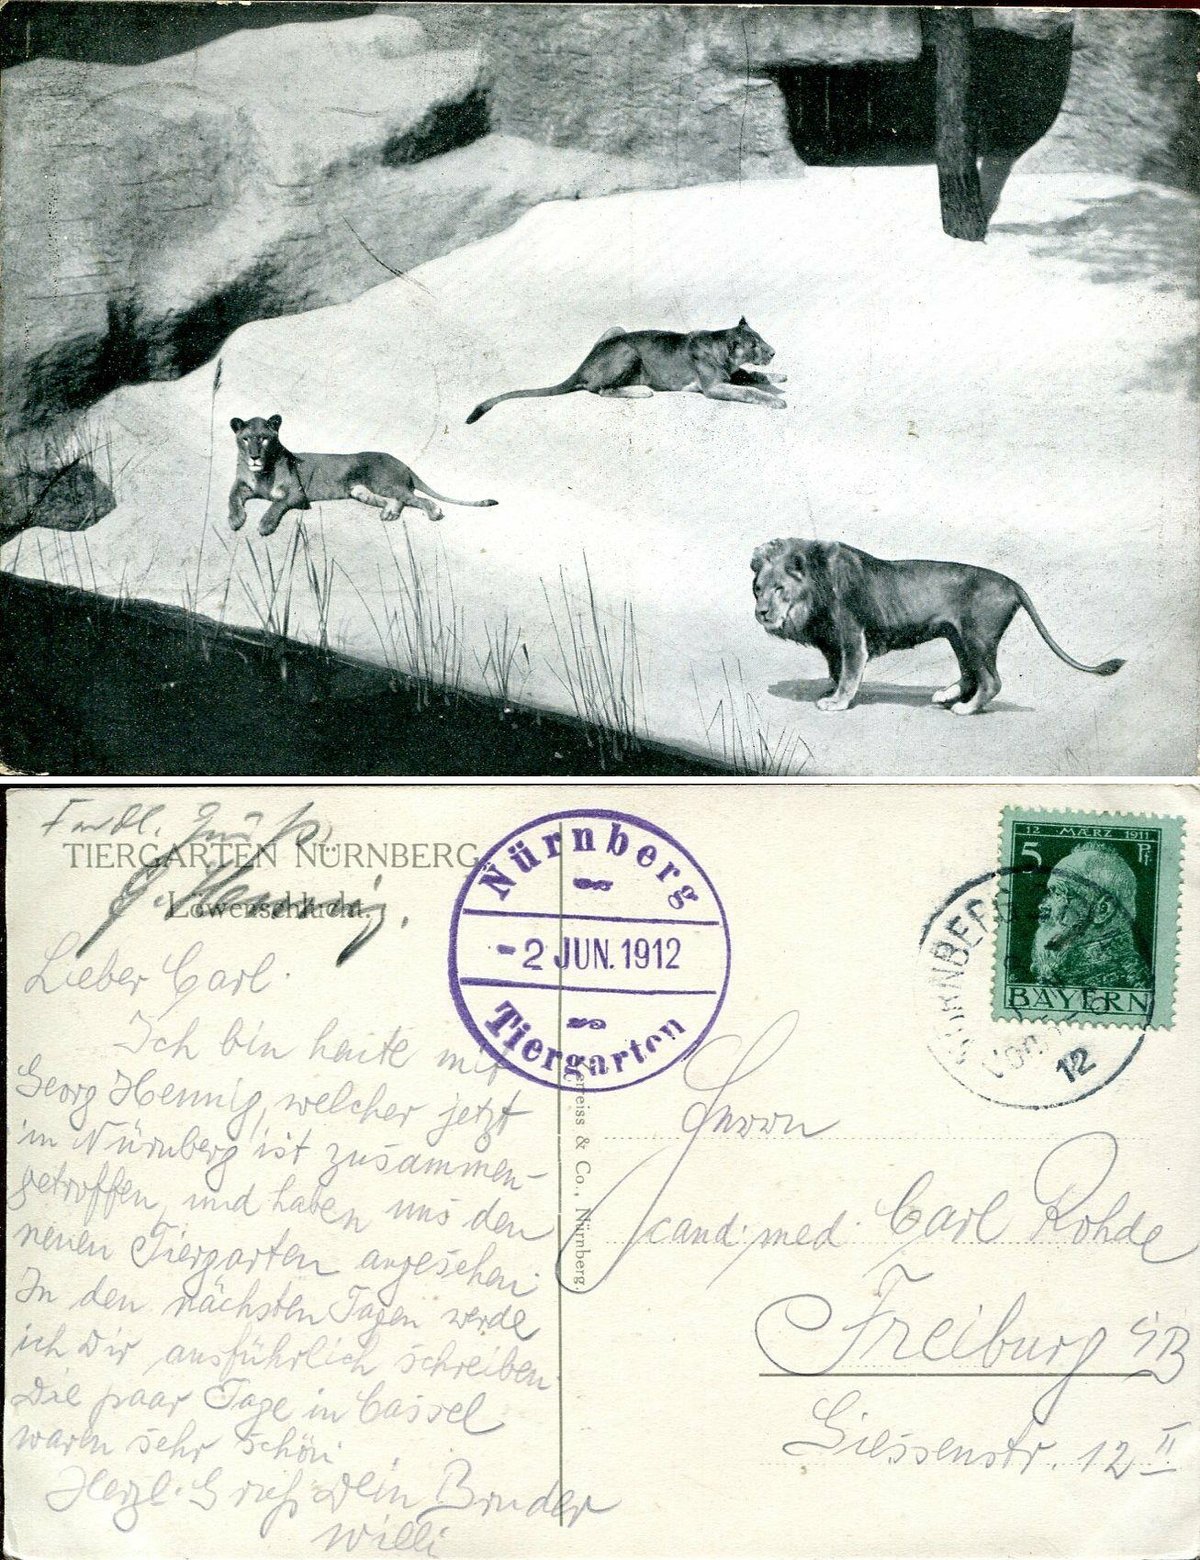 Frdl. Gruß
TIERGARTEN NÜRNBERG
G. Hennig.
Löwenschlucht.
Lieber Carl.
Ich bin heute mit
Georg Hennig, welcher jetzt
in Nürnberg ist zusammen-
getroffen, und haben uns den
neuen Tiergarten angesehen.
In den nächsten Tagen werde
ich Dir ausführlich schreiben.
Die paar Tage in Cassel
waren sehr schön.
Herzl. Gruß Dein Bruder
Willi
Nürnberg
-2 JUN. 1912
Tiergarten
& Co., Nürnberg.
12 MÆRZ 1911
5 Pf
BAYERN
NÜRNBERG
12
Herrn
cand. med. Carl Rohde
Freiburg i/B
Giessenstr. 12 II